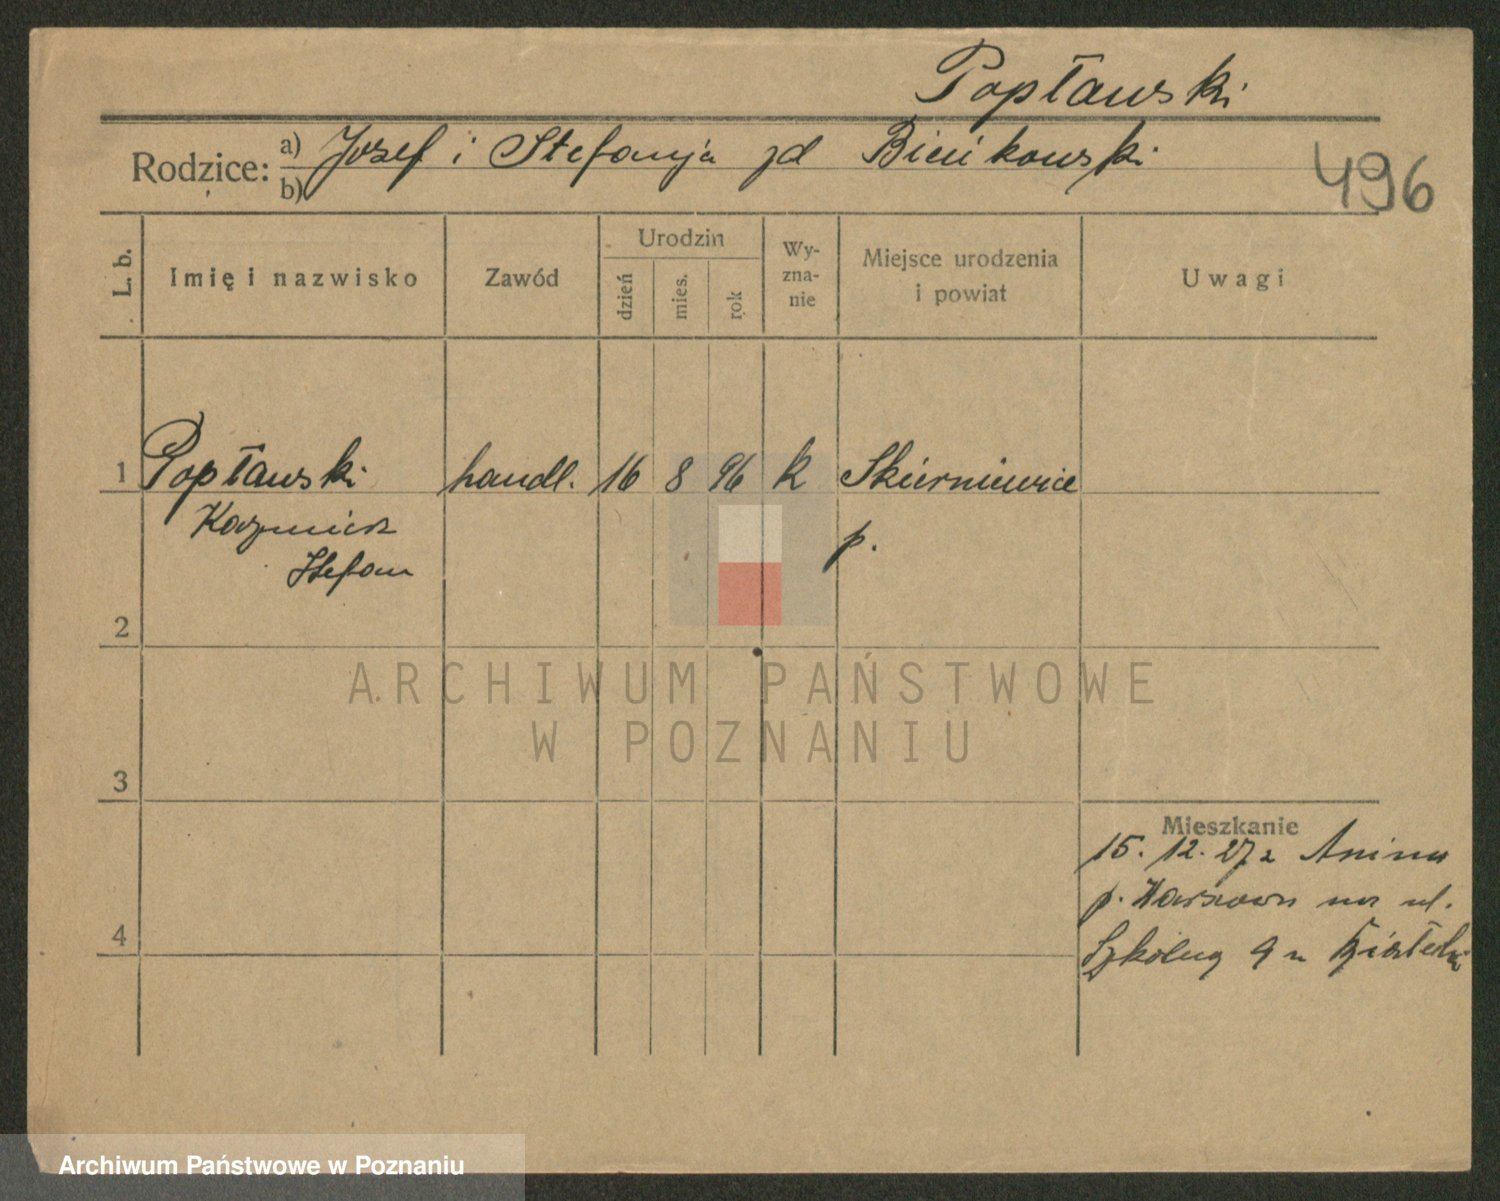 Popławski
Rodzice: a) Josef i Stefanja zd Bieńkowski
b)
496
L. b.
Imię i nazwisko
Zawód
Urodzin
dzień
mies.
rok
Wy-
zna-
nie
Miejsce urodzenia
i powiat
Uwagi
1 Popławski handl. 16 8 96 k Skierniewice
Kazmierz p.
Stefan
2
3
4
Mieszkanie
15. 12. 27 z Anina
p. Warszawa na ul.
Szkólną 9 u
ARCHIWUM PAŃSTWOWE
W POZNANIU
Archiwum Państwowe w Poznaniu